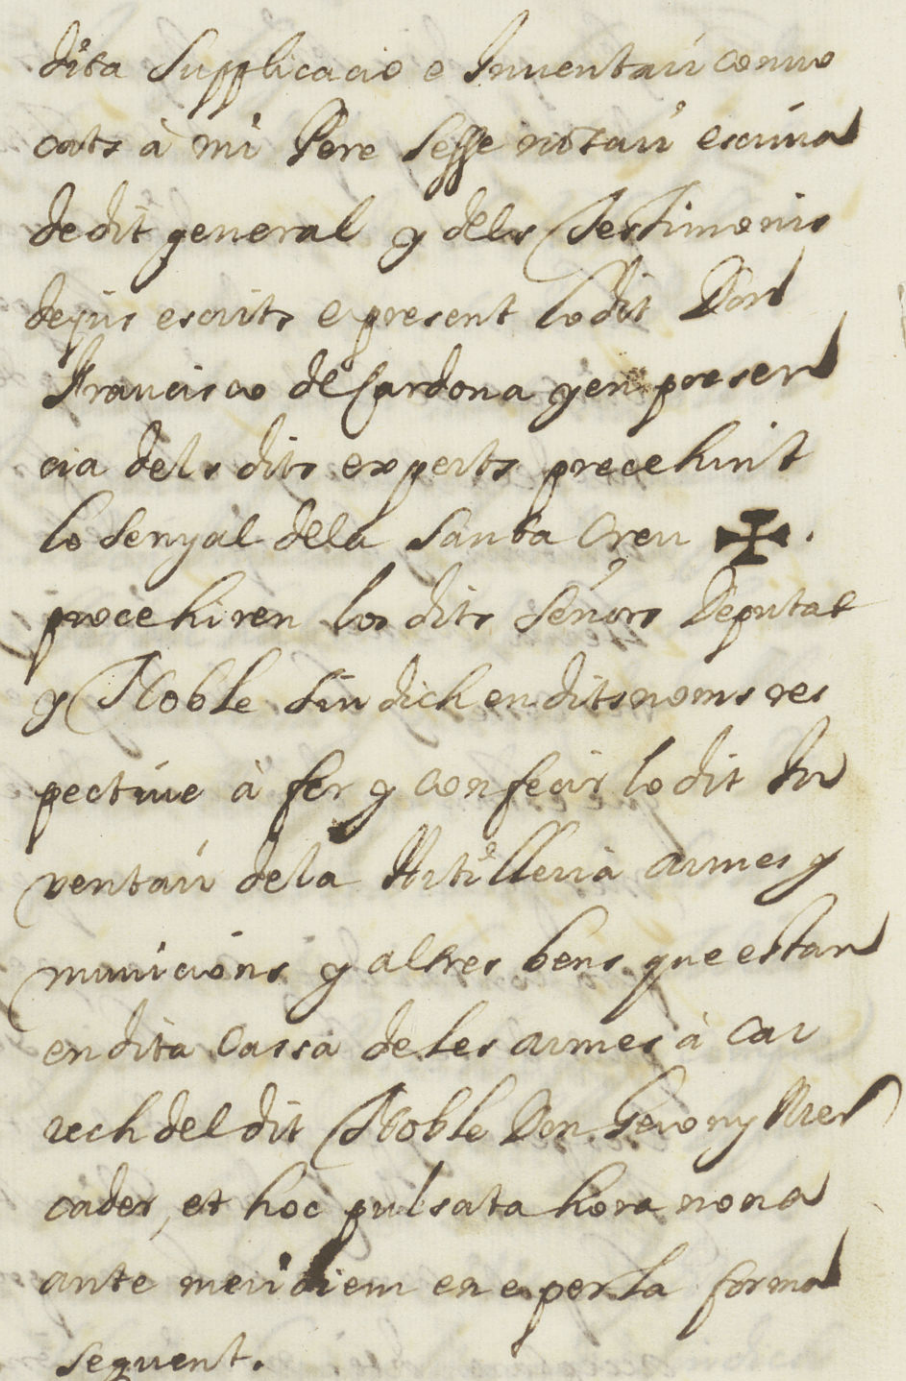 dita Supplicacio e Inventari convo
cats à mi Pere Sesse notari escriva
de dit general y dels Testimonis
dejus escrits e present lo dit Don
Francisco de Cardona y en presen
cia dels dits experts precehint
lo senyal dela Santa Creu ✠.
procehiren los dits señors Deputat
y Noble Sindich en dits noms res
pective à fer y confegir lo dit In
ventari dela Artilleria armes y
municions y altres bens que estan
en dita Cassa de les armes à car
rech del dit Noble Don Gerony Mer
cader, et hoc pulsata hora nona
ante meridiem en e per la forma
seguent.